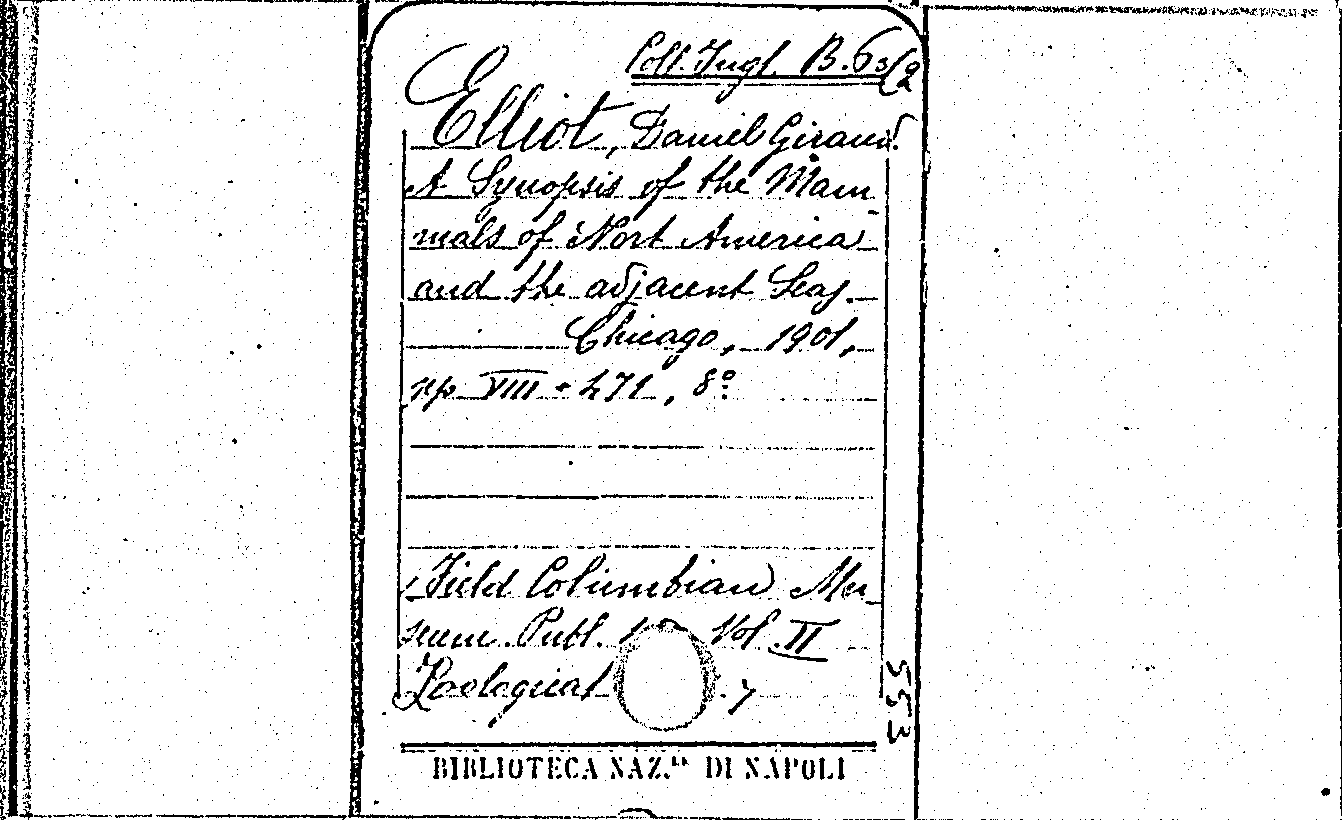 Coll. Ingl. B.
Elliot, Daniel Giraud.
A Synopsis of the Mam
mals of Nort America
and the adjacent Seas.
Chicago, 1901,
pp VIII + 471, 8°
Field Columbian Mu
seum Publ. Vol. II
Zoological
BIBLIOTECA NAZ.LE DI NAPOLI